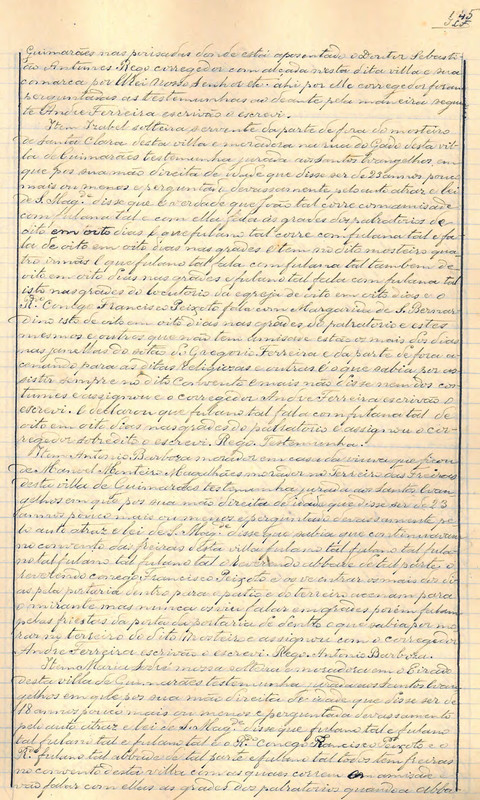 145
Guimarães nas pousadas donde está aposentado o Doutor Sebasti-
ão Antunes Rego corregedor com alçada nesta dita villa e sua
comarca por ElRei Nosso Senhor ahi por elle corregedor foram
perguntadas as testemunhas ao deante pela maneira segui-
te André Ferreira escrivão o escrevi.
Item Izabel solteira servente da parte de fora do mosteiro
de Santa Clara desta villa e moradora na rua do Gado desta vil-
la de Guimarães testemunha jurada aos Santos Evangelhos em
que pos sua mão direita de idade que disse ser de 25 annos pouco
mais ou menos e perguntada devassamente pelo auto atraz e lei
de S. Magde disse que é verdade que João tal corre com amisade
com fulana tal e com ella fala ás grades dos palratorios de
oito em oito dias e que fulano tal corre com fulana tal e fa-
la de oito em oito dias nas grades e tem no dito mosteiro qua-
tro irmãs e que fulano tal fala com fulana tal tambem de
oito em oito dias nas grades e fulano tal fala com fulana tal
isto nas grades do locutorio da egreja de oito em oito dias e o
Rdo Conego Francisco Peixoto fala com Margarida de S. Bernar-
dino isto de oito em oito dias nas grades do palratorio e estes
mesmos e outros que não tem la missa estão os mais dos dias
nas janellas do oitão de Gregorio Ferreira e da parte de fora a-
cenando para as ditas Religiozas e outras e o que sabia por as-
sistir sempre no dito Convento e mais não disse nem dos cos-
tumes e assignou e o corregedor André Ferreira escrivão o
escrevi. E declarou que fulano tal fala com fulana tal de
oito em oito dias nas grades do palratorio e assignou o cor-
regedor sobredito o escrevi. Rego. Testemunha.
Item Antonio Barboza morador em casa da viuva que ficou
de Manoel Monteiro Magalhães morador no Terreiro das Freiras
desta villa de Guimarães testemunha jurada aos Santos Evan-
gelhos em que pos sua mão direita de idade que disse ser de 23
annos pouco mais ou menos e perguntado devassamente pe-
lo auto atraz e lei de S. Magde disse que sabia que continuavam
no convento das freiras desta villa fulano tal fulano tal fula-
no tal fulano tal fulano tal o Reverendo abbade de tal parte, o
reverendo conego Francisco Peixoto e os ve entrar os mais dos di-
as pela portaria dentro para o patio e do terreiro acenam para
o mirante mas nunca os viu falar em grades porém falam
pelas frestas da porta da portaria de dentro o que sabia por mo-
rar no terreiro do dito Mosteiro e assignou com o corregedor
André Ferreira escrivão o escrevi. Rego. Antonio Barboza.
Item Maria Sodré mossa solteira e moradora em o Eirado
desta villa de Guimarães testemunha jurada aos Santos Evan-
gelhos em que pos sua mão direita de idade que disse ser de
18 annos pouco mais ou menos e perguntada devassamente
pelo auto atraz e lei de S. Magde disse que fulano tal e fulano
tal fulano tal e fulano tal e o Rdo Conego Francisco Peixoto e o
Rdo fulano tal abbade de tal parte e fulano tal todos tem freiras
no convento desta villa com as quaes correm em amisade e
vão falar com ellas ás grades dos palratorios quando a abba-